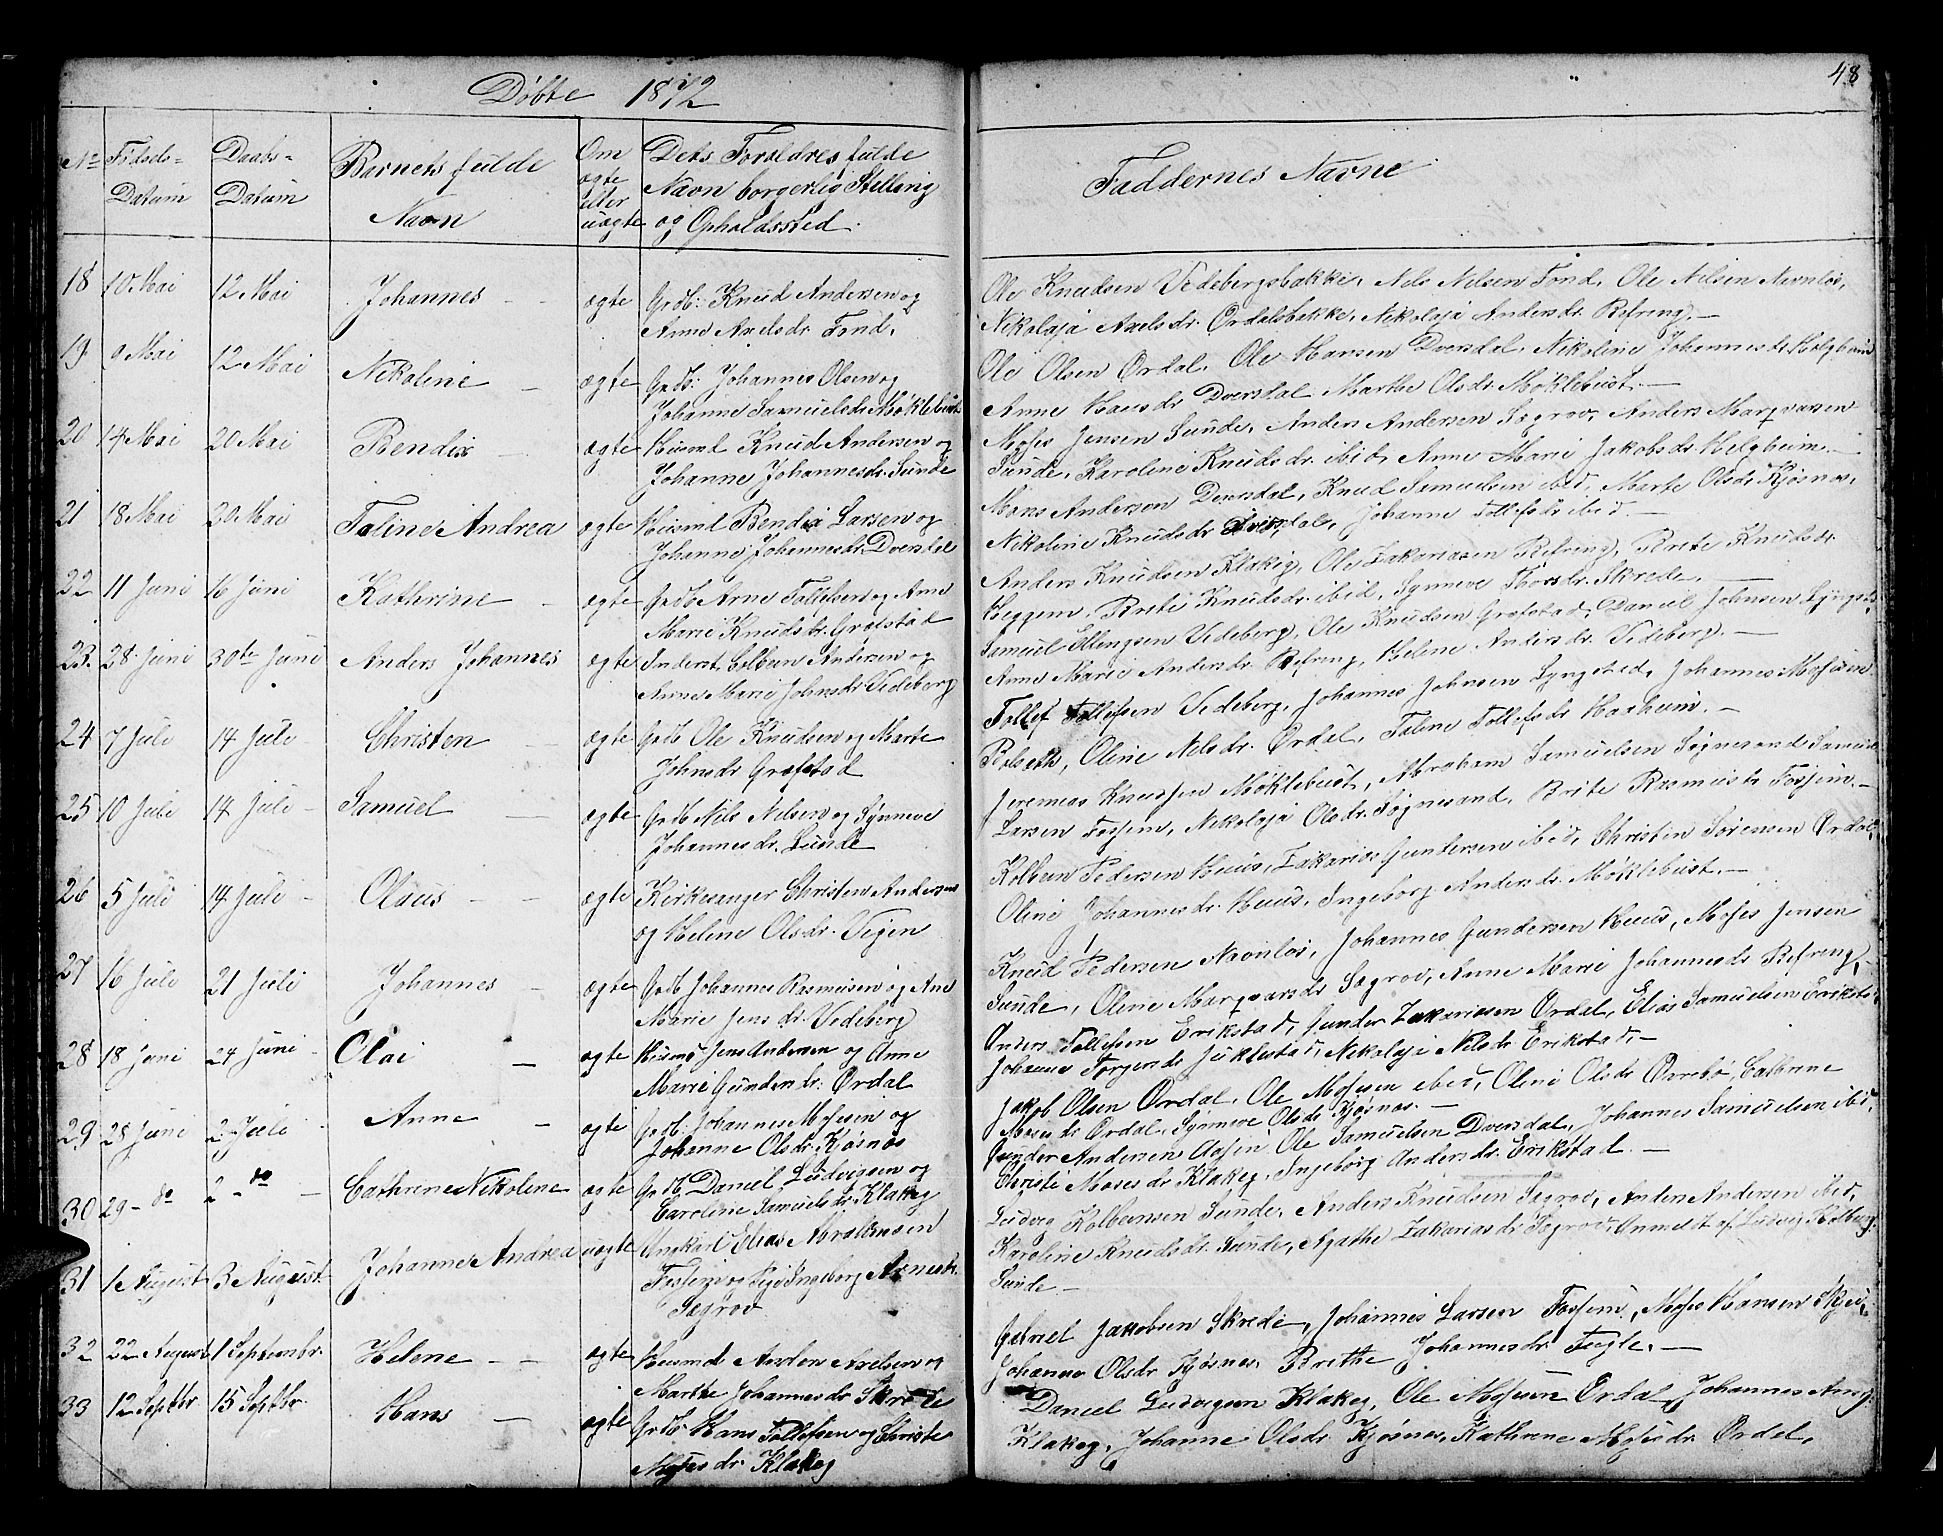 Døbte 1872
No Fødsels- Datum
Daabs- Datum
Barnets fulde Navn
Om ægte eller uægte
Dets Forældres fulde
Navn borgerlig Stilling
og Opholdssted.
18 10 Mai 12 Mai Johannes - ægte Grdb: Knud Andersen og
Anne Axelsdr. Fond.
19 9 Mai 12 Mai Nikoline - ægte Grdb: Johannes Olsen og
Johanne Samuelsdr. Møklebust
20 14 Mai 20 Mai Bendix - ægte Huusmd Knud Andersen og
Johanne Johannesdr. Sunde
21 18 Mai 20 Mai Taline Andrea ægte Huusmd Bendix Larsen og
Johanne Johannesdr. Dversdal
22 11 Juni 16 Juni Kathrine - ægte Grdb Arne Tollefsen og Ane
Marie Knudsdr. Grøfstad
23. 28 Juni 30te Juni Anders Johannes ægte Inderst Colbeun Andersen og
Anne Marie Johnsdr Vedeberg
24 7 Juli 14 Juli Christen - ægte Grdb Ole Knudsen og Marte
Johnsdr Grøfstad
25 10 Juli 14 Juli - Samuel - ægte Grdb Nils Nilsen og Synneve
Johannesdr. Sunde
26 5 Juli 14 Juli - Olaus - - ægte Kirkesanger Christen Andersen
og Helene Olsdr. Teigen
27 16 Juli 21 Juli Johannes - ægte Grdb Johannes Rasmusen og Ane
Marie Jensdr. Vedeberg
28 18 Juni 24 Juni - Olai - ægte Huusmd Jens Andersen og Anne
Marie Gundersdr: Ørdal
29 28 Juni 2 Juli - Anne - ægte Grdb. Johannes Mosesen og
Johanne Olsdr. Kjøsnæs
30 29 - do 2 - do - Cathrine Nikoline ægte Grdb. Daniel Ludvigsen og
Caroline Samuelsdr. Klakeg
31 1 August 3 August. Johanne Andrea uægte Ungkarl Elias Abrahamsen
Fossem og Pige Ingeborg Arnesdr.
Søgrov
32 22 August 1 Septembr. Helene - - ægte Huusmd Anders Axelsen og
Marthe Johannesdr. Skrede
33 12 Septbr 15 Septbr. Hans - ægte Grdb Hans Tollefsen og Christe
Mosesdr. Klakeg
48
Faddernes Navne
Ole Knudsen Vedebergsbakke, Nels Nelsen Fond, Ole Nilsen Navnløs,
Nikolaja Axelsdr. Ørdalsbakke, Nikolaja Andersdr. Refreng. -
Ole Olsen Ørdal, Ole Hansen Dversdal, Nikoline Johannesdr. Helgheim
Anne Hansdr Dversdal Marthe Olsdr. Møklebust. -
Moses Jensen Sunde, Anders Andersen Søgrov, Anders Marqvarsen
Sunde, Karoline Knudsdr. ibid, Anne Marie Jakobsdr. Helgheim. -
Mons Andersen Dversdal, Knud Samuelsen ibid, Marte Olsdr. Kjøsnæs,
Nikoline Knudsdr Dversdal, Johanne Tollefsdr ibid. -
Anders Knudsen Klakeg, Ole Zakariasen Refreng, Brite Knudsdr.
Heggem, Brite Knudsdr. ibid, Synneve Thorsdr. Skrede. -
Samuel Ellengsen Vedeberg, Ole Knudsen Grøfstad, Daniel Johnsen Lyngstad,
Anne Marie Andersdr. Refreng, Helene Andersdr. Vedeberg. -
Tollef Tollefsen Vedeberg, Johannes Johnsen Lyngsted, Johannes Mosesen
Bolseth, Oline Nelsdr. Ørdal, Taline Tollefsdr. Haaheim. -
Jeremias Knudsen Møklebust, Abraham Samuelsen Søgnesand, Samuel
Larsen Fossem, Nikolaja Olsdr. Søgnesand, Brite Rasmusdr. Fossem. -
Kolbeun Pedersen Huus, Zakarias Gundersen ibid, Christen Sørensen Ørdal,
Oline Johannesdr. Huus, Ingeborg Andersdr. Møklebust. -
Knud Pedersen Navnløs, Johannes Gundersen Huus, Moses Jensen
Sunde, Oline Marqvarsdr. Søgrov, Anne Marie Johannesdr Refreng, -
Anders Tollefsen Erikstad, Gunder Zakariasen Ørdal, Elias Samuelsen Erikstad
Johanne Torgersdr. Juklestad, Nikolaja Nilsdr Erikstad. -
Jakob Olsen Ørdal, Ole Mosesen ibid, Oline Olsdr Øvrebø, Cathrine
Mosesdr Ørdal, Synneve Olsdr Kjøsnæs. -
Gunder Andersen Aasen Ole Samuelsen Dversdal, Johannes Samuelsen ibid,
Christe Mosesdr Klakeg, Ingeborg Andersdr. Erikstad. -
Ludvig Kolbeunsen Sunde, Anders Knudsen Søgrov, Anders Andersen ibid,
Karoline Knudsdr. Sunde, Agathe Zakariasdr. Søgrov, Anmeldt af Ludvig Kolbeuns.
Sunde. -
Gabriel Jakobsen Skrede, Johannes Larsen Fossem, Moses Hansen Skjei,
Johanne Olsdr Kjøsnæs, Brithe Johannesdr. Fugle. -
Daniel Ludvigsen Klakeg, Ole Mosesen Ørdal, Johannes
Klakeg, Johanne Olsdr Kjøsnæs, Kathrine Mosesdr. Ørdal.